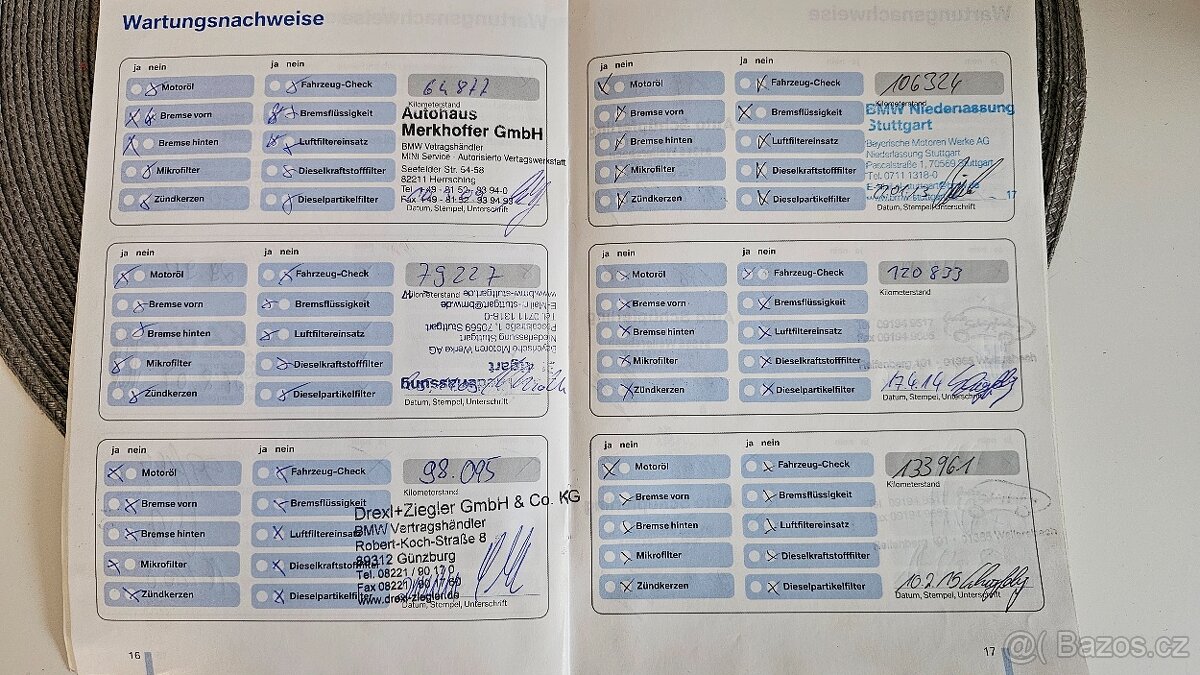 Wartungsnachweise
ja nein
ja nein
Motoröl
Fahrzeug-Check
64877
Bremse vorn
Bremsflüssigkeit
Kilometerstand
Autohaus
Merkhoffer GmbH
Bremse hinten
Luftfiltereinsatz
BMW Vetragshändler
MINI Service - Autorisierte Vertagswerkstatt
Mikrofilter
Dieselkraftstofffilter
Seefelder Str. 54-58
82211 Herrsching
Tel. +49 - 81 52 - 93 94-0
Zündkerzen
Dieselpartikelfilter
Fax +49 - 81 52 - 93 94 93
Datum, Stempel, Unterschrift
ja nein
ja nein
Motoröl
Fahrzeug-Check
79227
Bremse vorn
Bremsflüssigkeit
Kilometerstand
www.bmw-stuttgart.de
E-Mail: nl-stuttgart@bmw.de
Tel. 0711 1318-0
Bremse hinten
Luftfiltereinsatz
Pascalstraße 1, 70569 Stuttgart
Niederlassung Stuttgart
Bayerische Motoren Werke AG
Mikrofilter
Dieselkraftstofffilter
Zündkerzen
Dieselpartikelfilter
Datum, Stempel, Unterschrift
ja nein
ja nein
Motoröl
Fahrzeug-Check
98.095
Kilometerstand
Bremse vorn
Bremsflüssigkeit
Drexl+Ziegler GmbH & Co. KG
BMW Vertragshändler
Bremse hinten
Luftfiltereinsatz
Robert-Koch-Straße 8
89312 Günzburg
Mikrofilter
Dieselkraftstofffilter
Tel. 08221 / 90 17 0
Fax 08221 / 90 17 60
Zündkerzen
Dieselpartikelfilter
www.drexl-ziegler.de
Datum, Stempel, Unterschrift
16
ja nein
ja nein
Motoröl
Fahrzeug-Check
106324
Kilometerstand
Bremse vorn
Bremsflüssigkeit
BMW Niederlassung
Stuttgart
Bremse hinten
Luftfiltereinsatz
Bayerische Motoren Werke AG
Niederlassung Stuttgart
Mikrofilter
Dieselkraftstofffilter
Pascalstraße 1, 70569 Stuttgart
Tel. 0711 1318-0
Zündkerzen
Dieselpartikelfilter
www.bmw-stuttgart.de
17
Datum, Stempel, Unterschrift
ja nein
ja nein
Motoröl
Fahrzeug-Check
120833
Kilometerstand
Bremse vorn
Bremsflüssigkeit
Bremse hinten
Luftfiltereinsatz
Mikrofilter
Dieselkraftstofffilter
Zündkerzen
Dieselpartikelfilter
17.4.14
Datum, Stempel, Unterschrift
ja nein
ja nein
Motoröl
Fahrzeug-Check
133961
Kilometerstand
Bremse vorn
Bremsflüssigkeit
Bremse hinten
Luftfiltereinsatz
Mikrofilter
Dieselkraftstofffilter
Zündkerzen
Dieselpartikelfilter
10.2.15
Datum, Stempel, Unterschrift
17
@( Bazos.cz